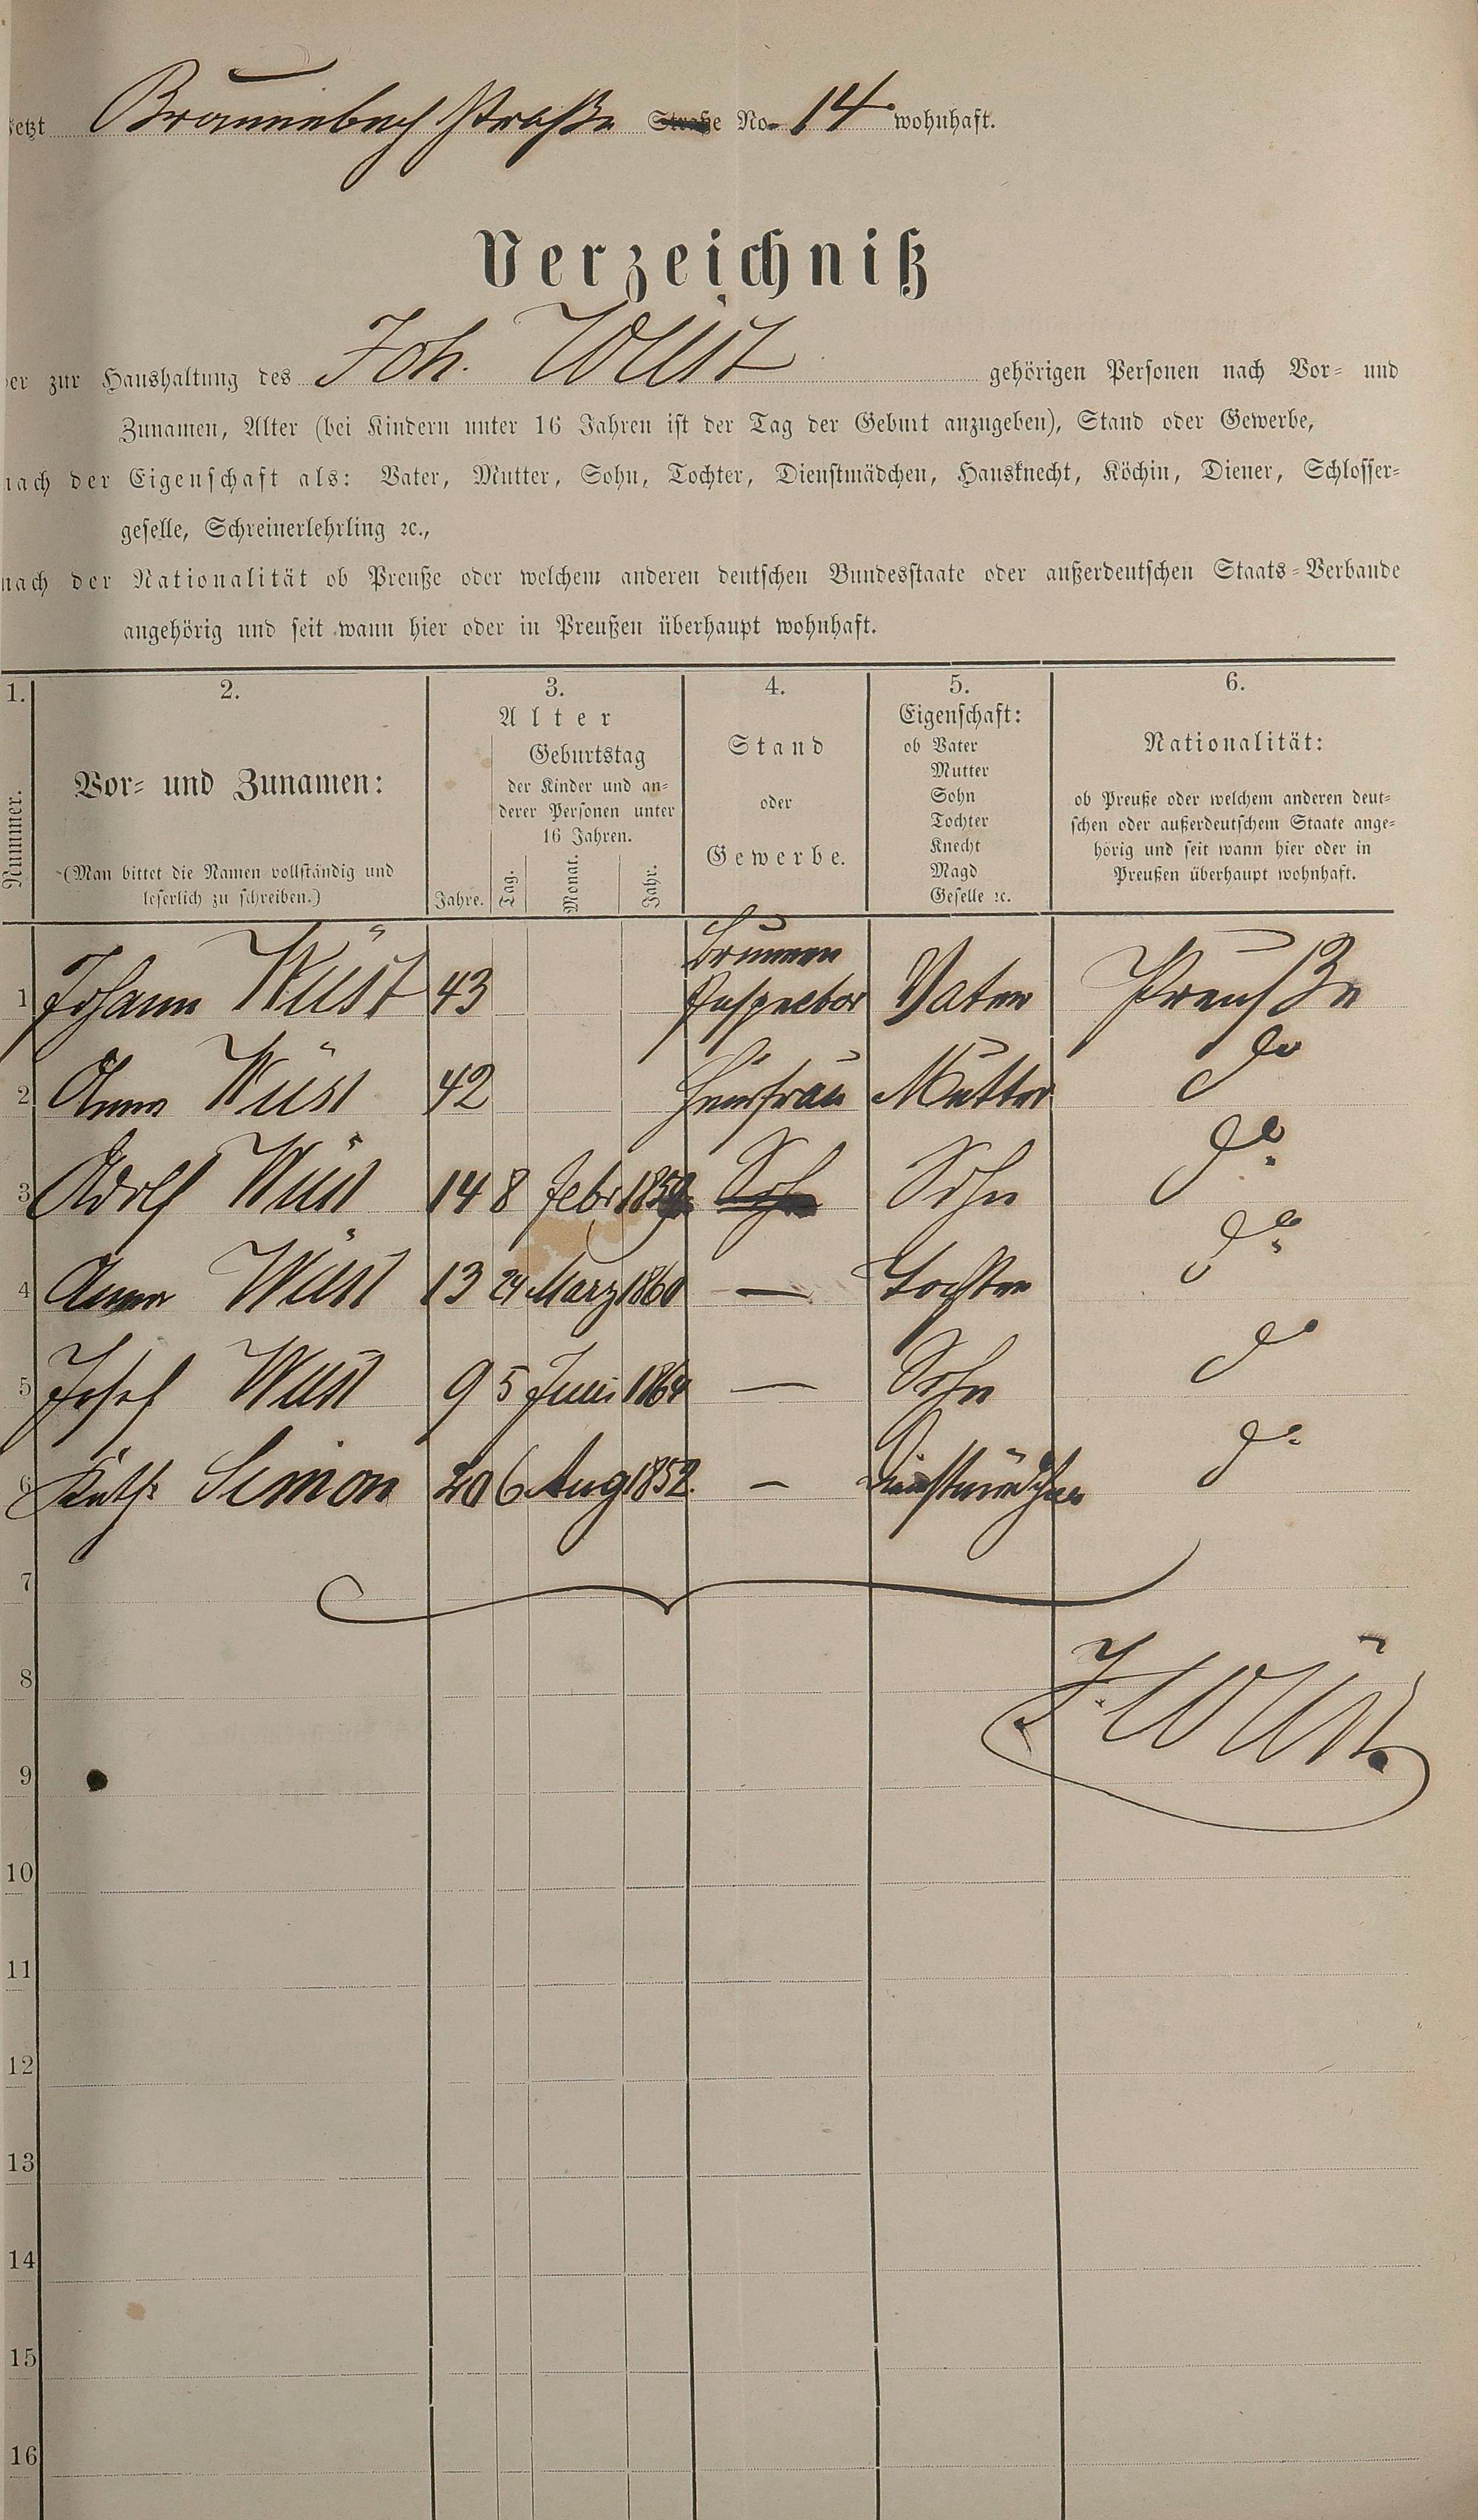 jetzt Braunebach Straße Straße No. 14 wohnhaft.
Verzeichniß
der zur Haushaltung des Joh. Wüst gehörigen Personen nach Vor- und
Zunamen, Alter (bei Kindern unter 16 Jahren ist der Tag der Geburt anzugeben), Stand oder Gewerbe,
nach der Eigenschaft als: Vater, Mutter, Sohn, Tochter, Dienstmädchen, Hausknecht, Köchin, Diener, Schlosser-
geselle, Schreinerlehrling ꝛc.,
nach der Nationalität ob Preuße oder welchem anderen deutschen Bundesstaate oder außerdeutschen Staats-Verbande
angehörig und seit wann hier oder in Preußen überhaupt wohnhaft.
1. 2. 3. 4. 5. 6.
Nummer.
Vor- und Zunamen:
(Man bittet die Namen vollständig und
leserlich zu schreiben.)
Alter
Geburtstag
der Kinder und an-
derer Personen unter
16 Jahren.
Jahre. Tag. Monat. Jahr.
Stand
oder
Gewerbe.
Eigenschaft:
ob Vater
Mutter
Sohn
Tochter
Knecht
Magd
Geselle ꝛc.
Nationalität:
ob Preuße oder welchem anderen deut-
schen oder außerdeutschem Staate ange-
hörig und seit wann hier oder in
Preußen überhaupt wohnhaft.
1 Johann Wüst 43 Brunnen Inspector Vater Preuße
2 Anna Wüst 42 Hausfrau Mutter do
3 Adolf Wüst 14 8 Febr 1859 Sohn Sohn do
4 Anna Wüst 13 24 März 1860 — Tochter do
5 Josef Wüst 9 5 Juni 1864 — Sohn do
6 Kath. Simon 20 6 Aug 1852. — Dienstmädchen do
7
8 J. Wüst
9
10
11
12
13
14
15
16